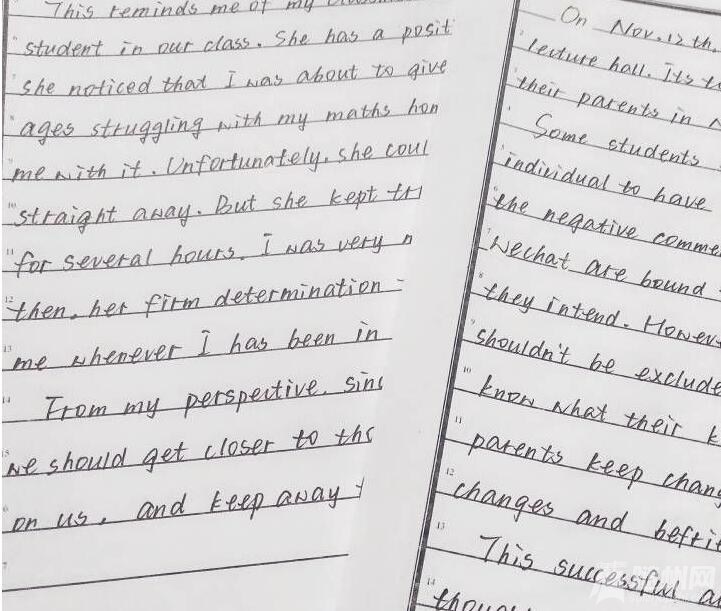 This reminds me of my
student in our class. She has a posit
she noticed that I was about to give
ages struggling with my maths hom
me with it. Unfortunately, she coul
straight away. But she kept tr
for several hours. I was very
then, her firm determination
me whenever I has been in
From my perspective, sinc
we should get closer to tho
on us, and keep away
On Nov. 12th,
lecture hall. Its t
their parents in
Some students
individual to have
the negative comme
Wechat are bound
they intend. Howev
shouldn't be exclude
know what their k
parents keep chang
changes and befri
This successful a
though